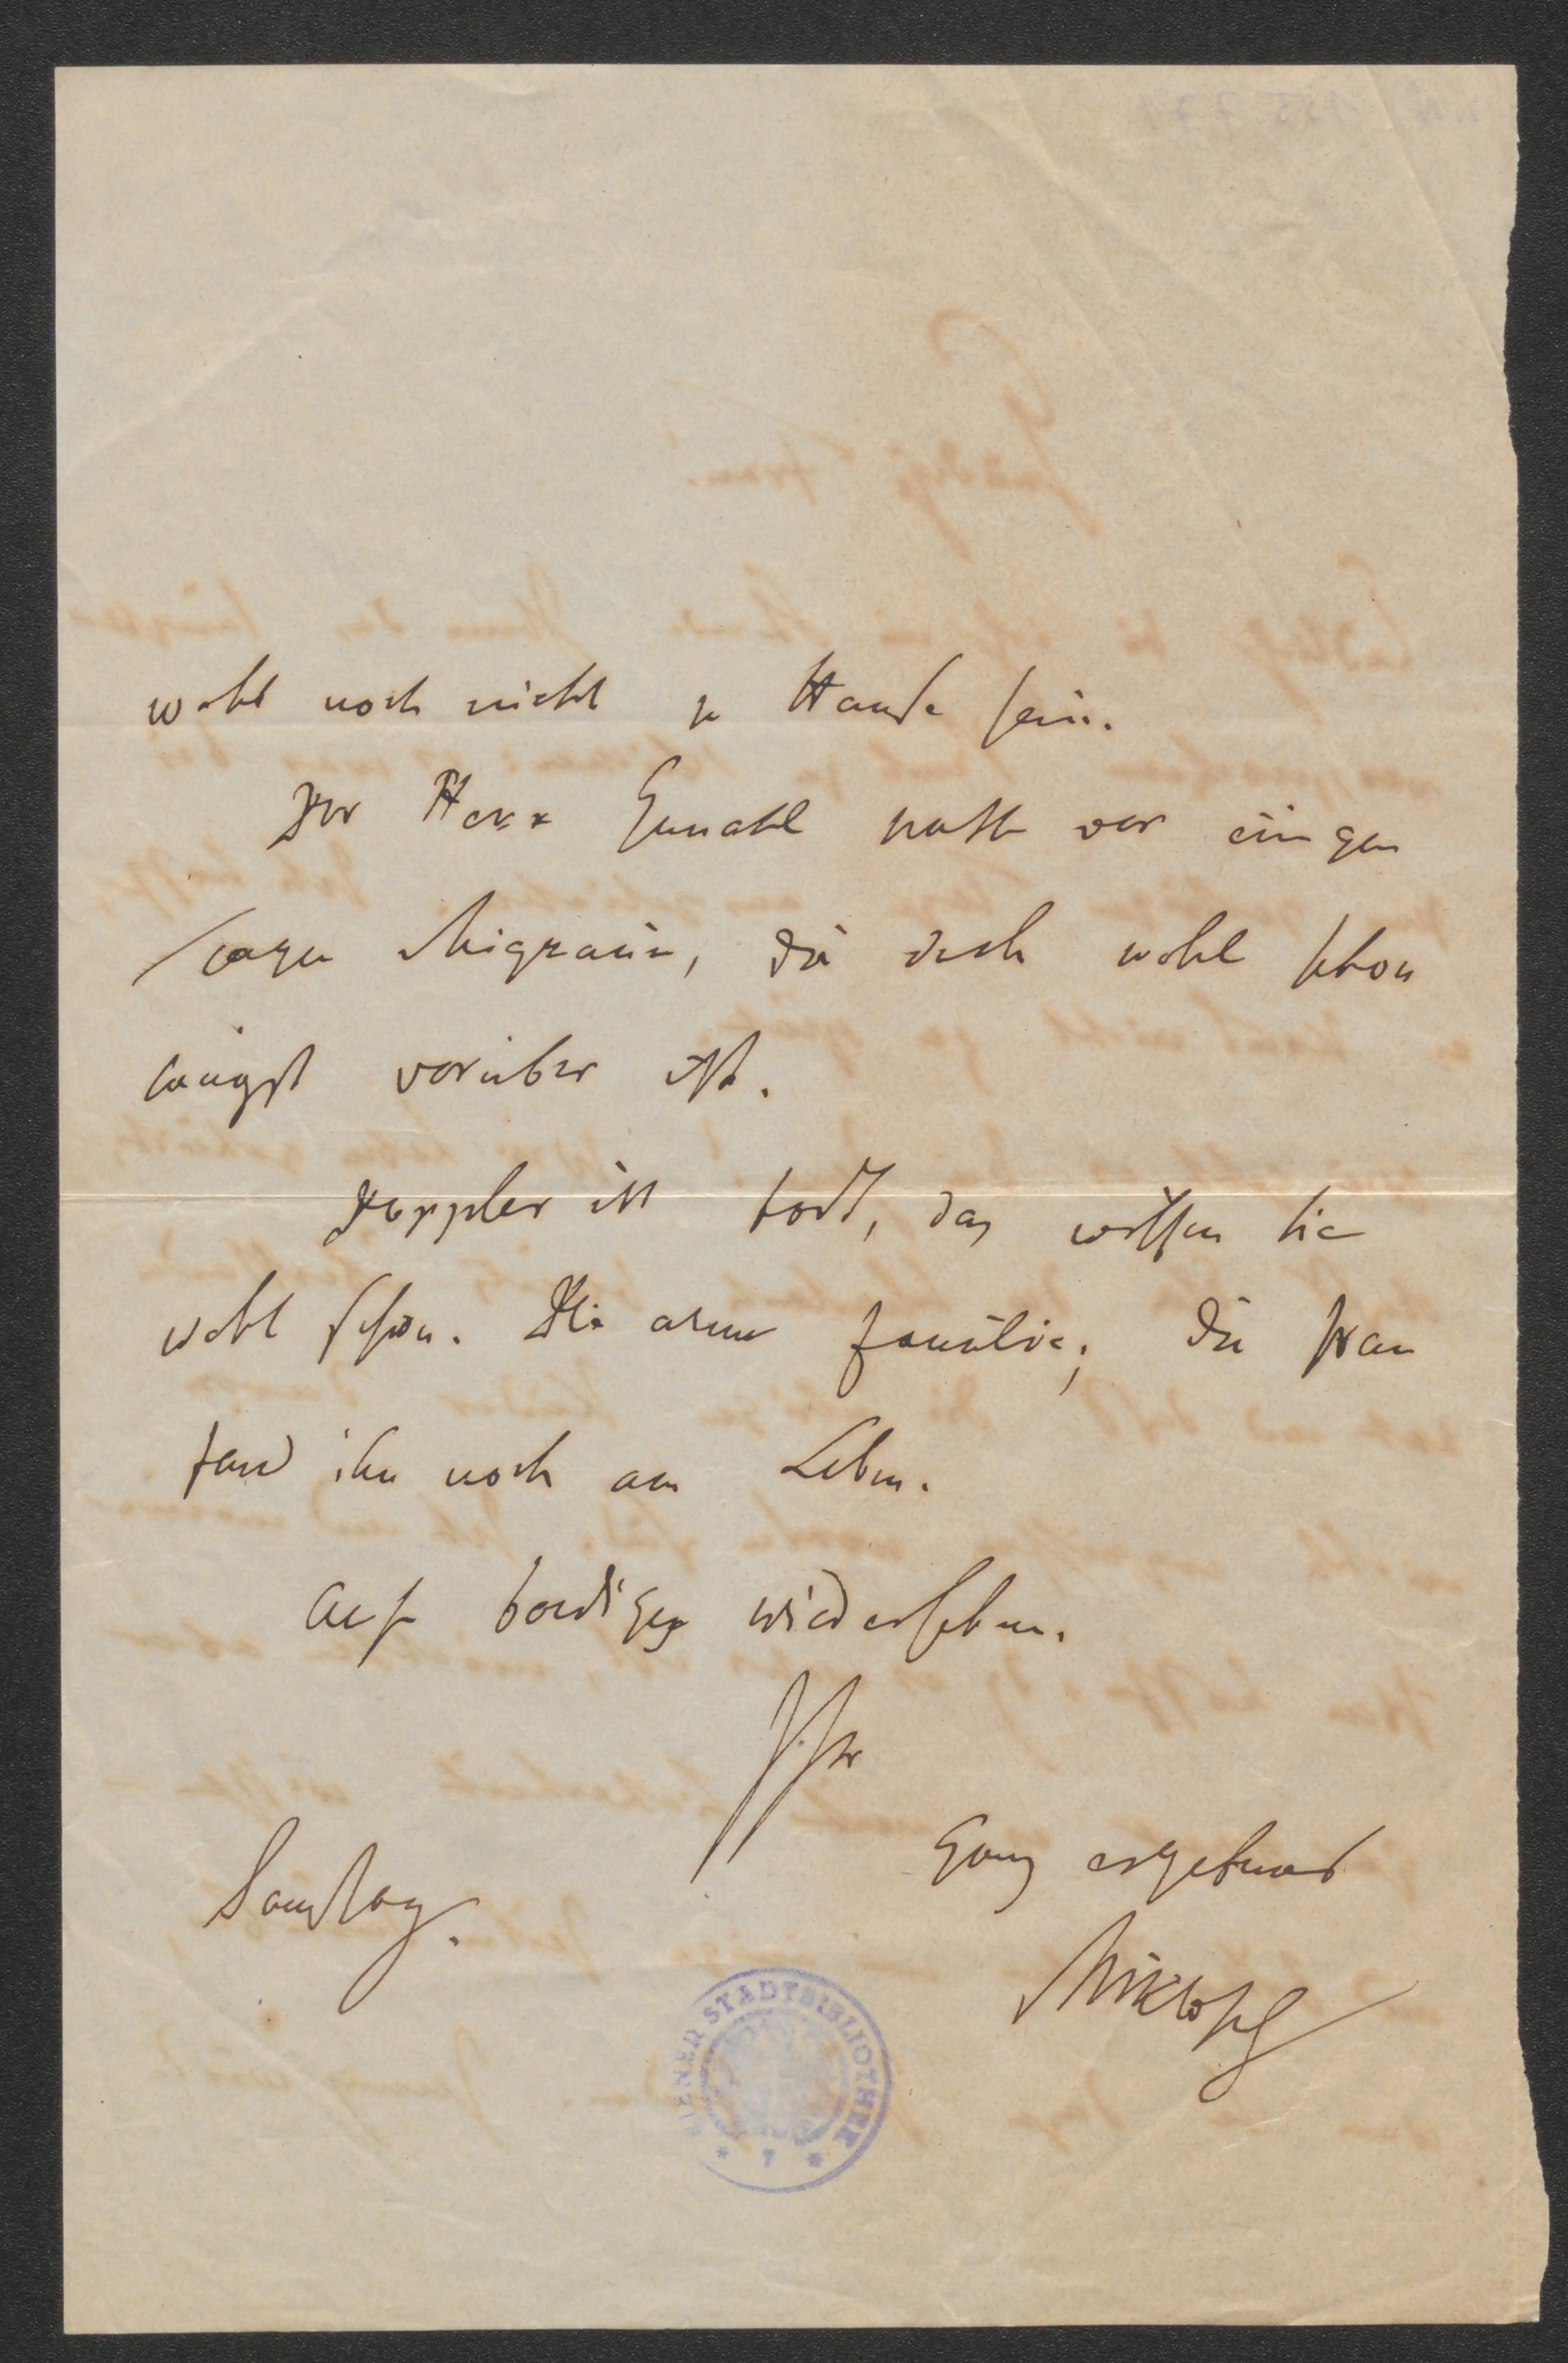 wohl noch nicht zu Hause sein.
Ihr Herr Gemahl hatte vor einigen
Tagen Migraine, die doch wohl schon
längst vorüber ist.
Doppler ist todt, das wissen Sie
wohl schon. Die arme Familie; die Frau
fand ihn noch am Leben.
Auf baldiges Wiedersehen.
Ihr
Ganz ergebener
Samstag.
Miklosich
WIENER STADTBIBLIOTHEK
* 7 *